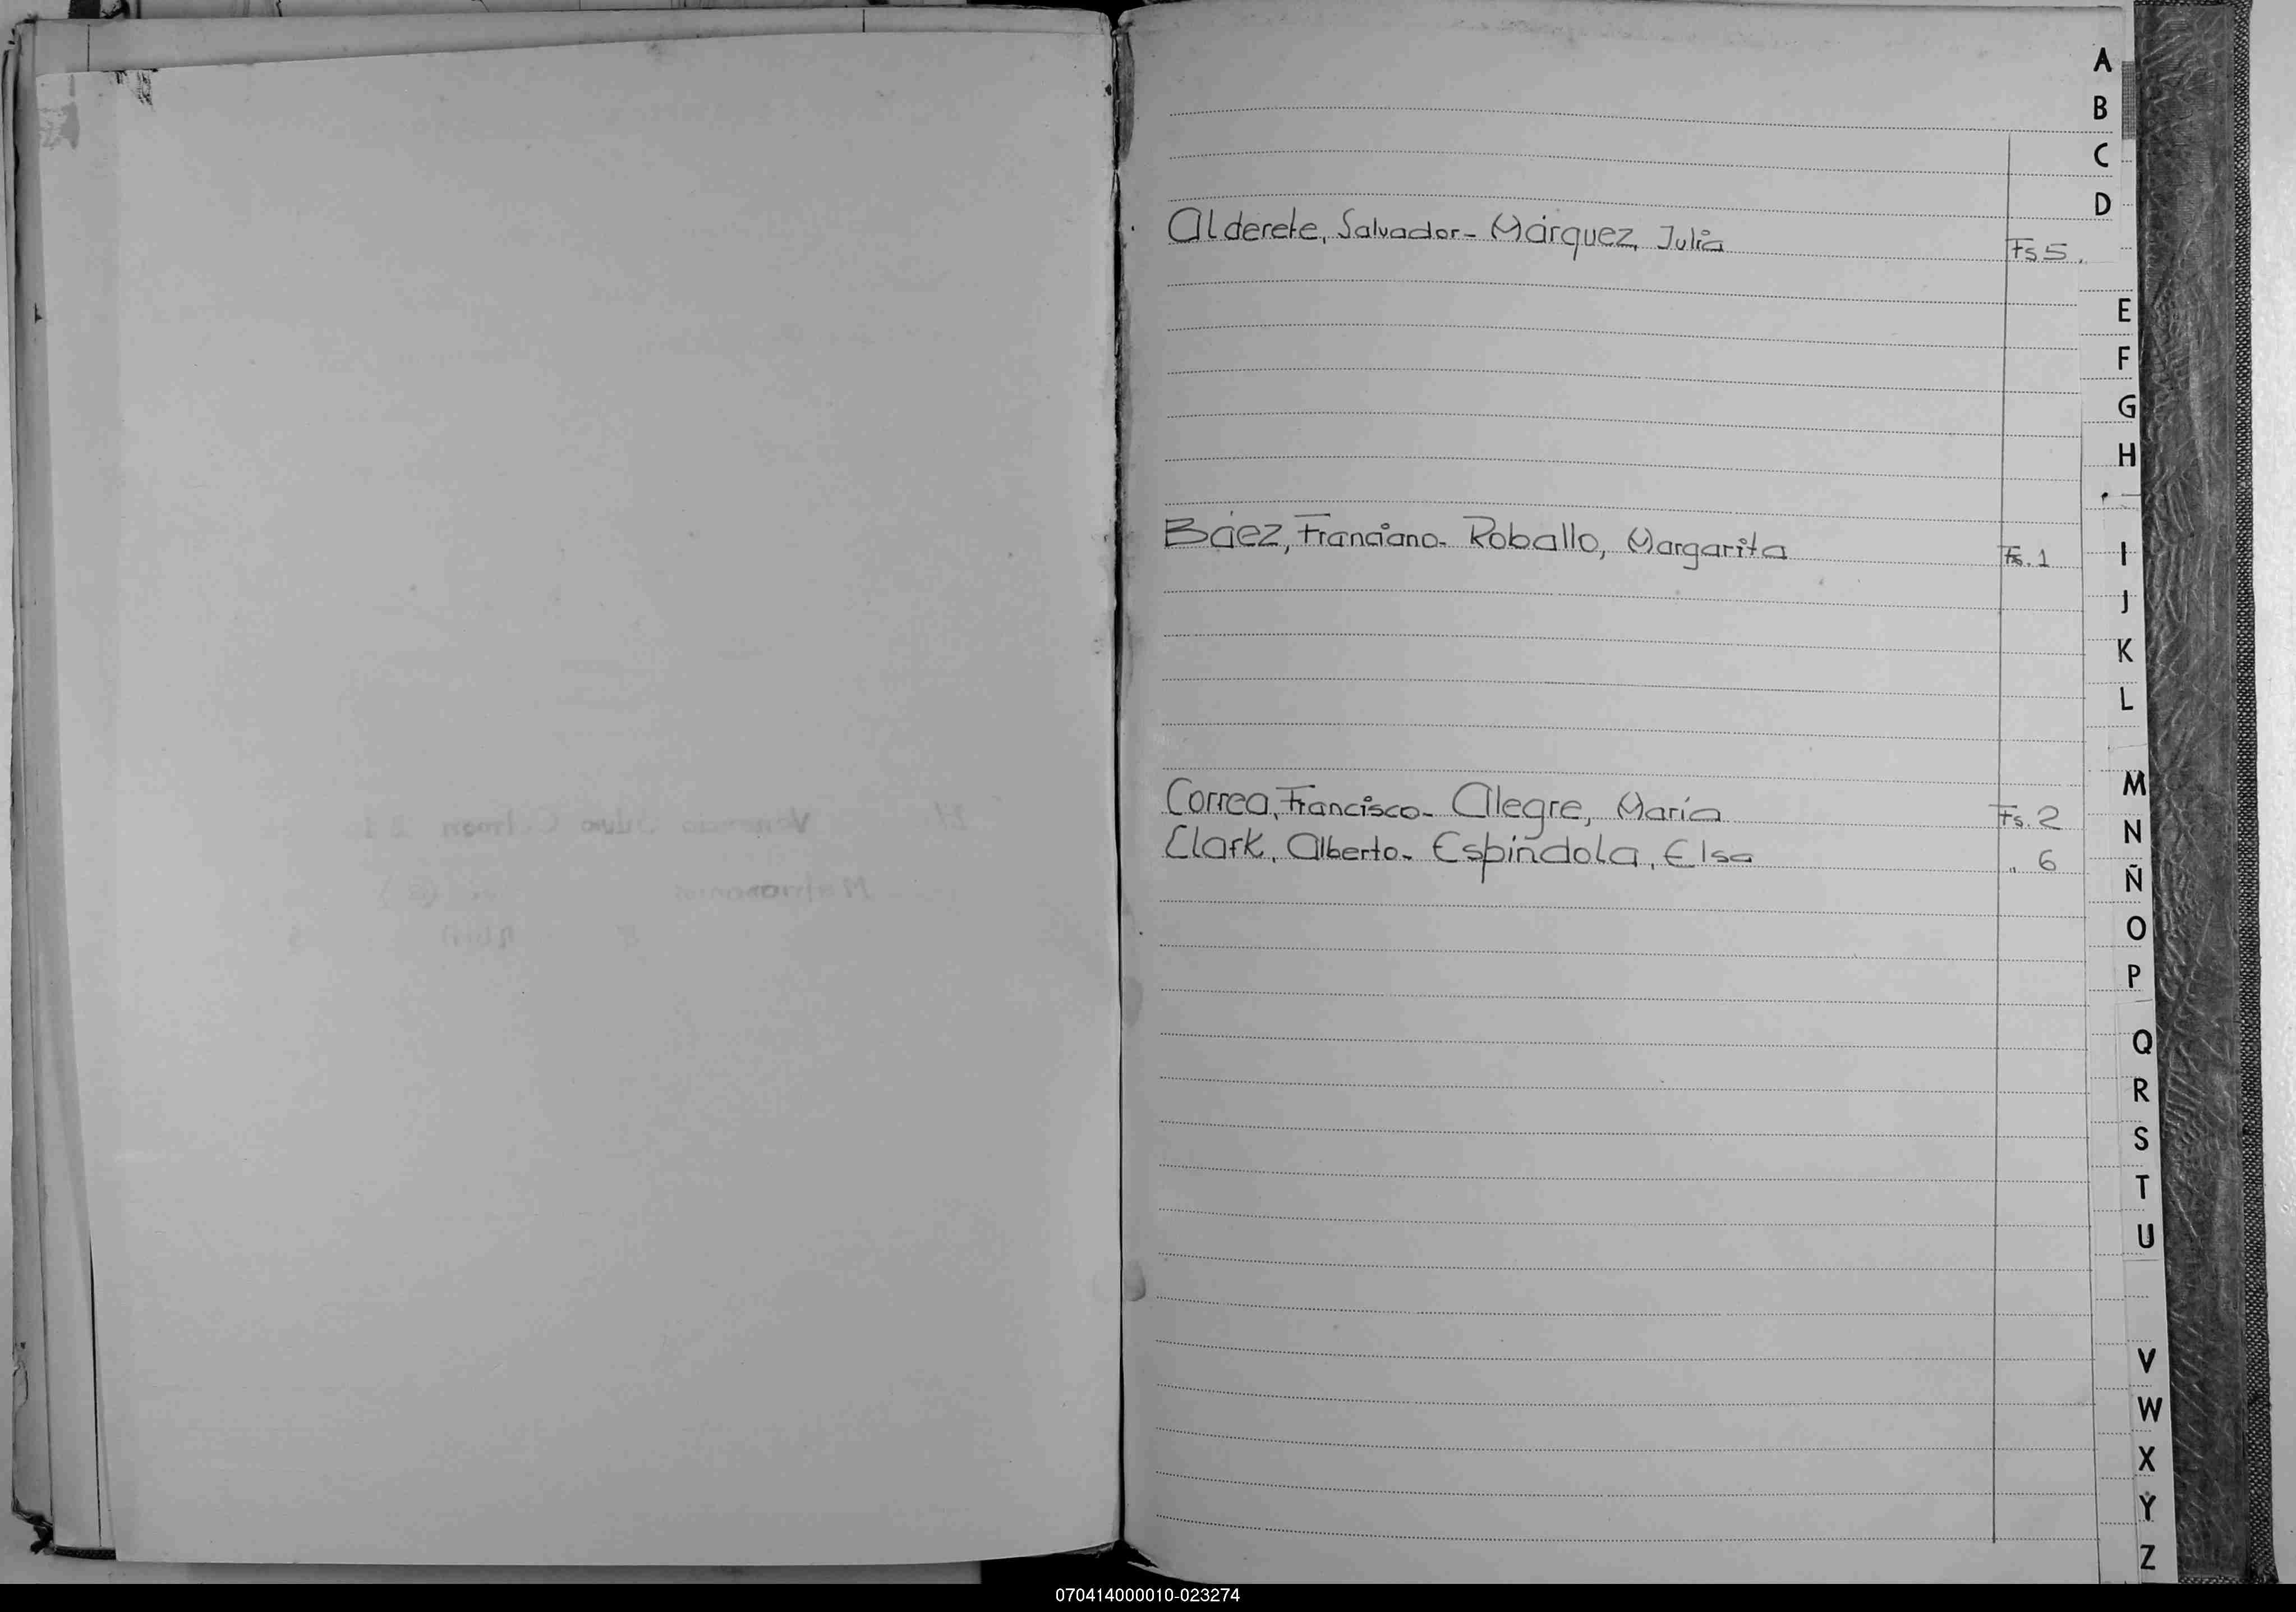 A
B
C
D
Alderete, Salvador - Márquez, Julia Fs 5.
E
F
G
H
Báez, Franciano - Roballo, Margarita Fs. 1
I
J
K
L
Correa, Francisco - Alegre, María Fs. 2
Clark, Alberto - Espíndola, Elsa " 6
M
N
Ñ
O
P
Q
R
S
T
U
V
W
X
Y
Z
070414000010-023274